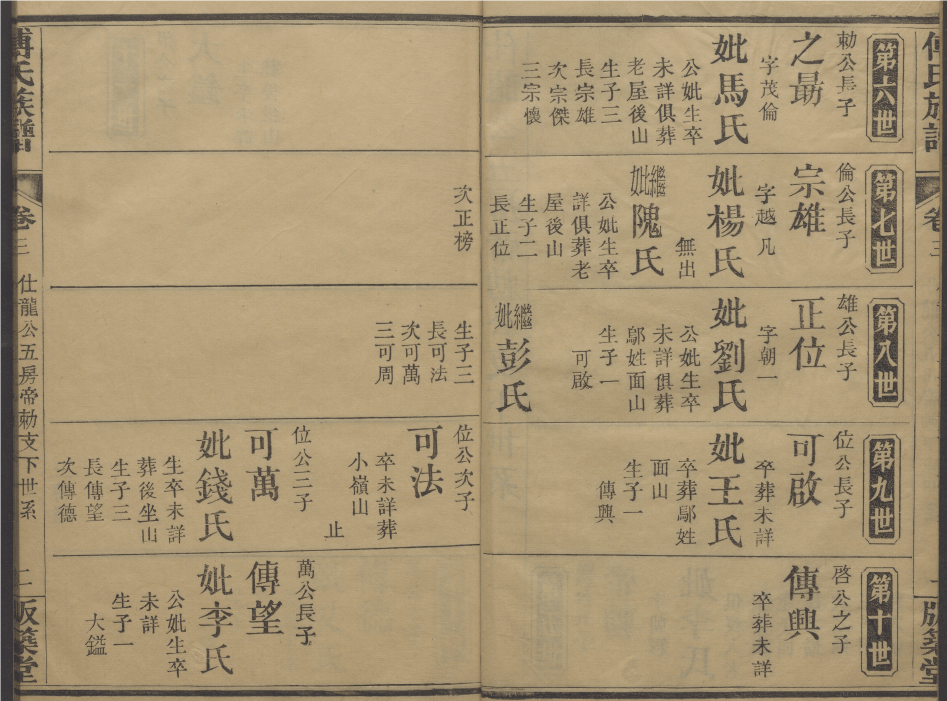 傅氏族譜
卷三
版築堂
第六世
勅公長子
之勗
字茂倫
妣馬氏
公妣生卒
未詳俱葬
老屋後山
生子三
長宗雄
次宗傑
三宗懷
第七世
倫公長子
宗雄
字越凡
妣楊氏
無出
繼妣隗氏
公妣生卒
詳俱葬老
屋後山
生子二
長正位
次正榜
第八世
雄公長子
正位
字朝一
妣劉氏
公妣生卒
未詳俱葬
鄔姓面山
生子一
可啟
繼妣彭氏
生子三
長可法
次可萬
三可周
第九世
位公長子
可啟
卒葬未詳
妣王氏
卒葬鄔姓
面山
生子一
傳興
位公次子
可法
卒未詳葬
小嶺山
止
位公三子
可萬
妣錢氏
生卒未詳
葬後坐山
生子三
長傳望
次傳德
第十世
啓公之子
傳興
卒葬未詳
萬公長子
傳望
妣李氏
公妣生卒
未詳
生子一
大鑑
傅氏族譜
卷三
仕龍公五房帝勅支下世系
二
版築堂